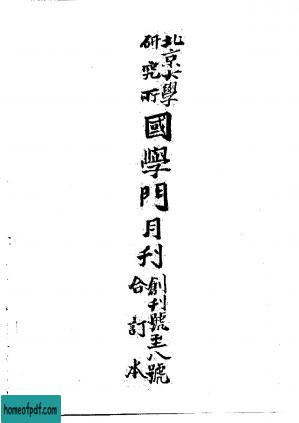 北京大學
研究所
國學門月刊
創刊號至八號
合訂本
homeofpdf.com